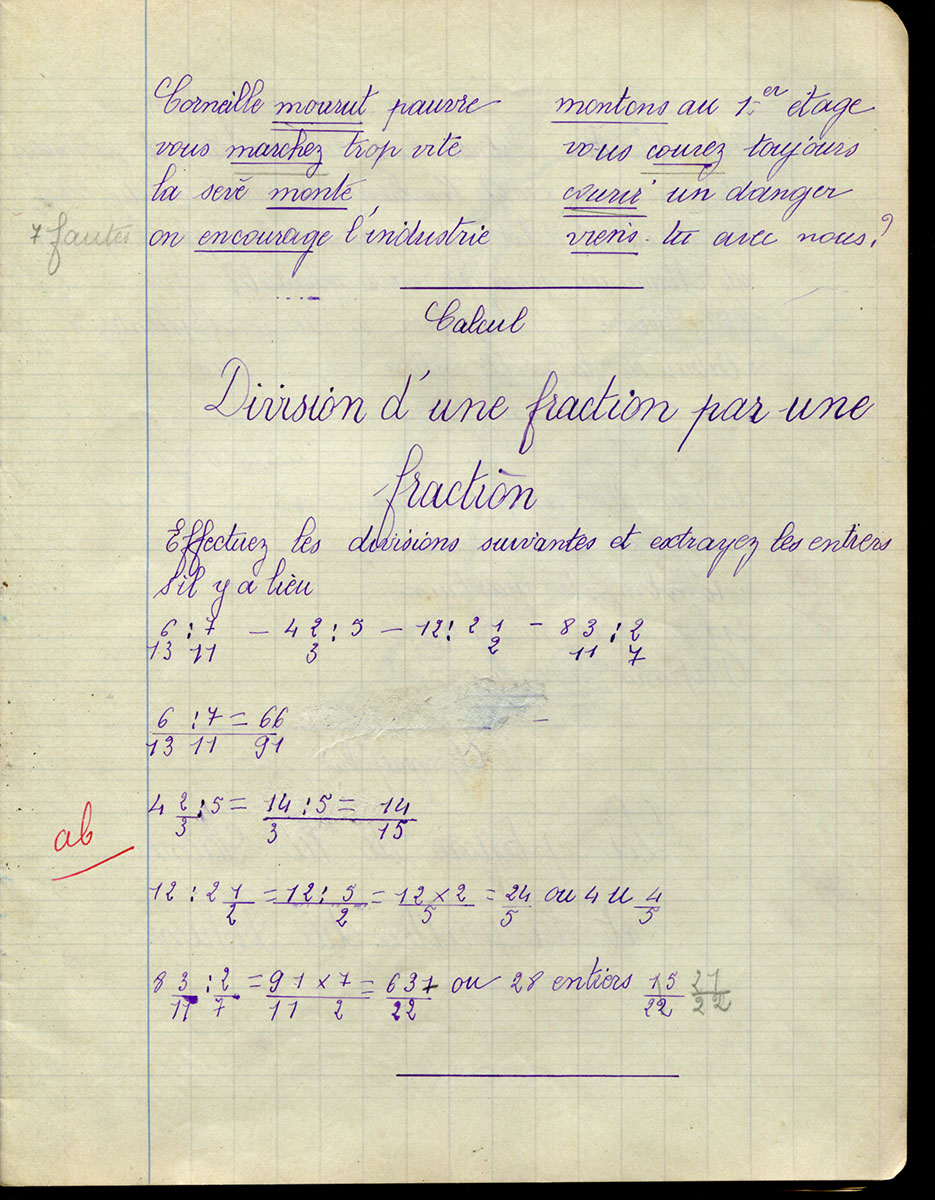 Corneille mourut pauvre
vous marchez trop vite
la sève monte
on encourage l'industrie
montons au 1er étage
vous courez toujours
courir un danger
viens-tu avec nous?
7 fautes
Calcul
Division d'une fraction par une
fraction
Effectuez les divisions suivantes et extrayez les entiers
s'il y a lieu
6/13 : 7/11 – 4 2/3 : 5 – 12 : 2 1/2 – 8 3/11 : 2/7
6/13 : 7/11 = 66/91
ab
4 2/3 : 5 = 14/3 : 5 = 14/15
12 : 2 1/2 = 12 : 5/2 = 12 x 2/5 = 24/5 ou 4 u 4/5
8 3/11 : 2/7 = 91 x 7/11 2 = 637/22 ou 28 entiers 15/22 21/22